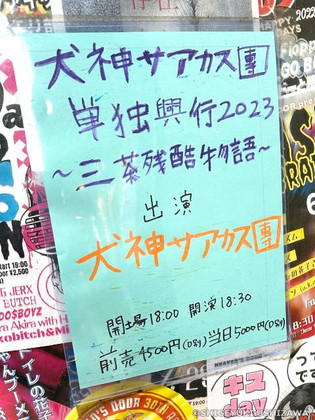 犬神サアカス團
単独興行2023
～三茶残酷物語～
出演
犬神サアカス團
開場18:00 開演18:30
前売4500円(D別)当日5000円(D別)
G JERX
BUTCH
OOSBOYZ
キス
day
トイレの花子
DOOR 30th
©SHIGEYUKI USHIZAWA